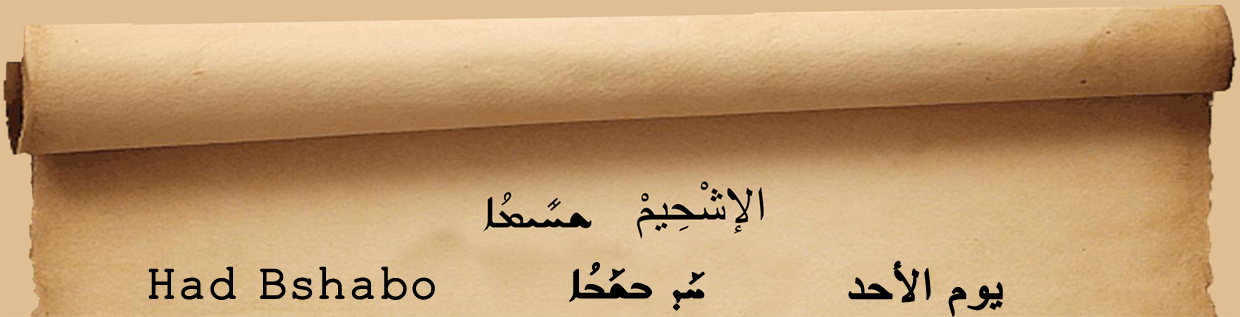 الإشْحِيمْ ܫܚܺܝܡܳܐ
يوم الأحد ܚܰܕ ܒܫܰܒܳܐ Had Bshabo